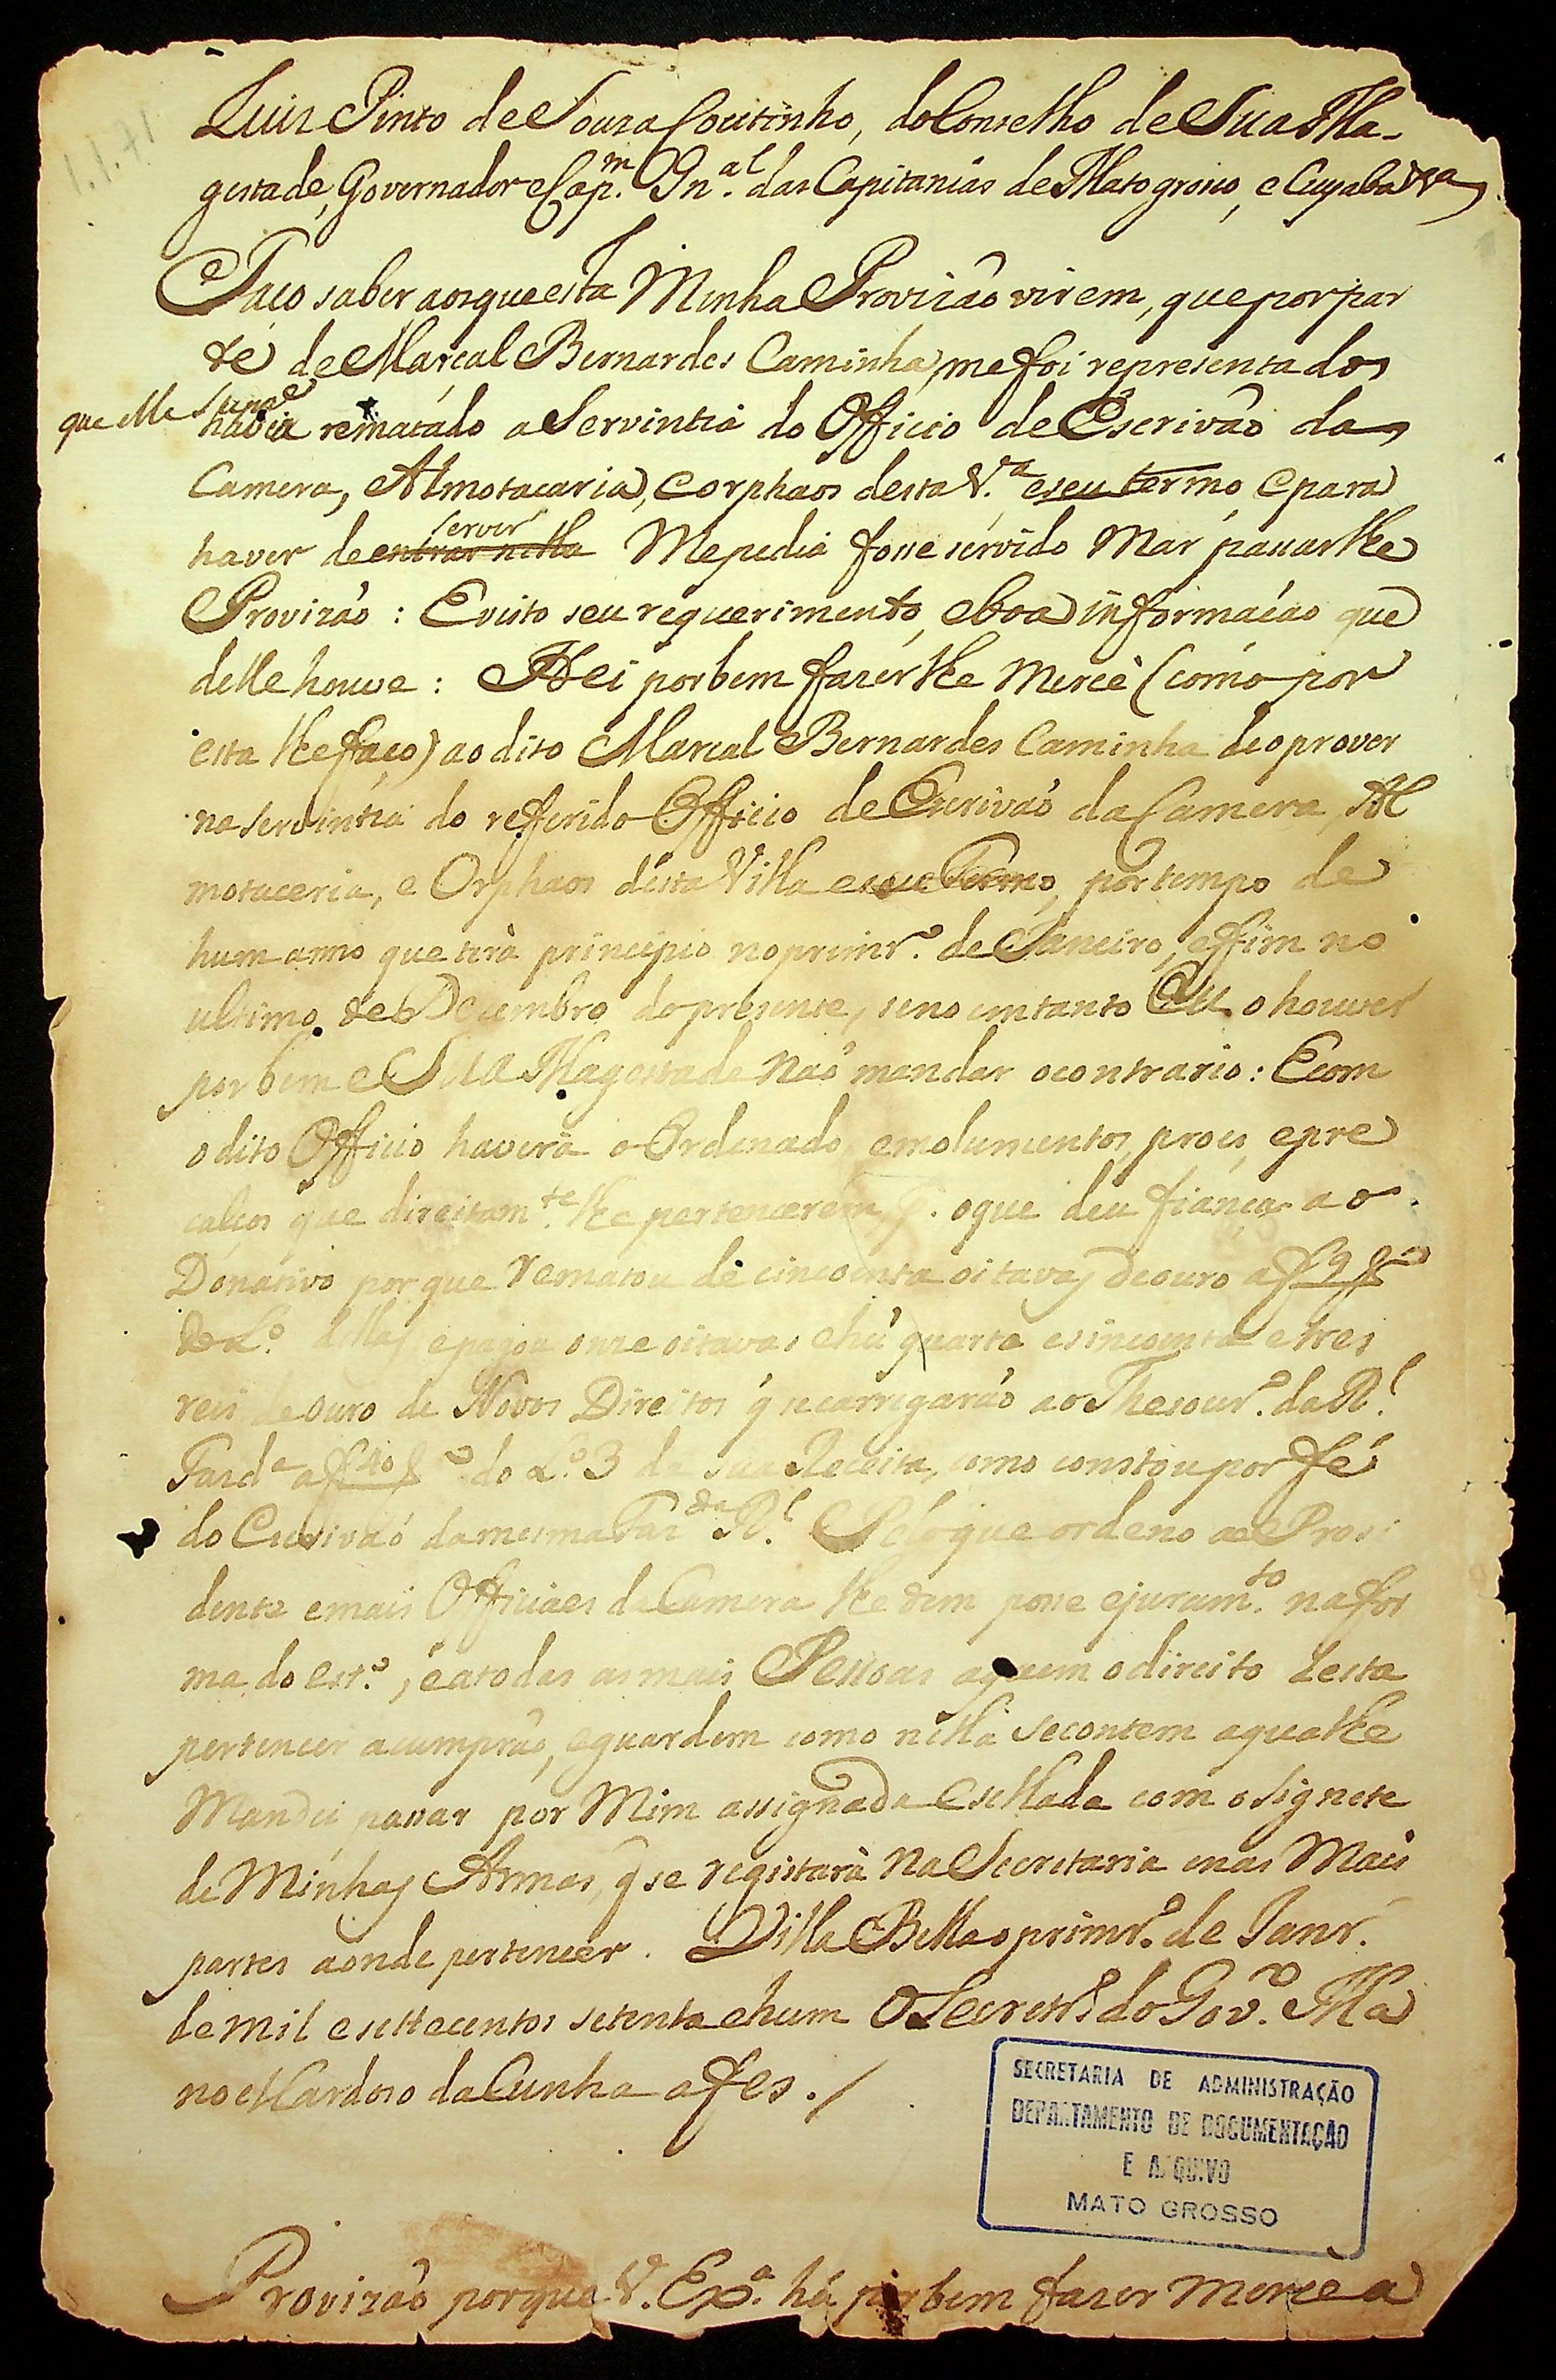 1.1.71
Luiz Pinto de Souza Coutinho, do Conselho de Sua Ma-
gestade, Governador e Cap.m Gn.al das Capitanias de Mato grosso, e Cuyaba &a
Faço saber aos que esta Minha Provizão virem, que por par
te de Marcal Bernardes Caminha, me foi representado
que elle
havia rematado a Serventia do Officio de Escrivão da
Camera, Almotacaria, e orphaos desta V.a e seu termo, e para
servir
haver de entrar nella Me pedia fosse servido Mandar passar lhe
Provizão: E visto seu requerimento, e boa informação que
delle houve: Hei por bem fazer lhe Mercè (como por
esta lhe faço) ao dito Marcal Bernardes Caminha de o prover
na serventia do refferido Officio de Escrivão da Camera, Al
motaceria, e Orphaos desta Villa e seu Termo, por tempo de
hum anno que terà principio no primr.o de Janeiro, e ffim no
ultimo de Dezembro do prezente, se no emtanto Eu o houver
por bem e Sua Magestade não mandar o contrario: E com
o dito Officio haverà o Ordenado, emolumentos, proes, e pre
calços que direitam.te lhe pertencerem, p. o que deu fiança ao
Donativo por que rematou de cincoenta oitavas de ouro a f 9
do L.o dellas, e pagou onze oitavas e hũ quarto e sincoenta e tres
reis de ouro de Novos Direitos q̃ se carregarão ao Thesour.o da R.l
Fazd.a a f 40 do L.o 3 de sua Receita, como constou por fé
do Escrivão da mesma Faz.da R.l Pelo que ordeno ao Prezi
dente e mais Officiaes da Camera lhe dem posse e juram.to na for
ma do est.o, e a todas as mais Pessoas a quem o direito desta
pertencer a cumprão, e guardem como nella se contem a qual lhe
Mandei passar por Mim assignada e sellada com o Signete
de Minhas Armas, q̃ se registarà na Secretaria e nas Mais
partes aonde pertencer. Villa Bella o primr.o de Janr.o
de mil e settecentos setenta e hum O Secretr.o do Gov.o Ma
noel Cardoso da Cunha a fes./
SECRETARIA DE ADMINISTRAÇÃO
DEPARTAMENTO DE DOCUMENTAÇÃO
E ARQUIVO
MATO GROSSO
Provizão porque V. Ex.a há por bem fazer Merce a